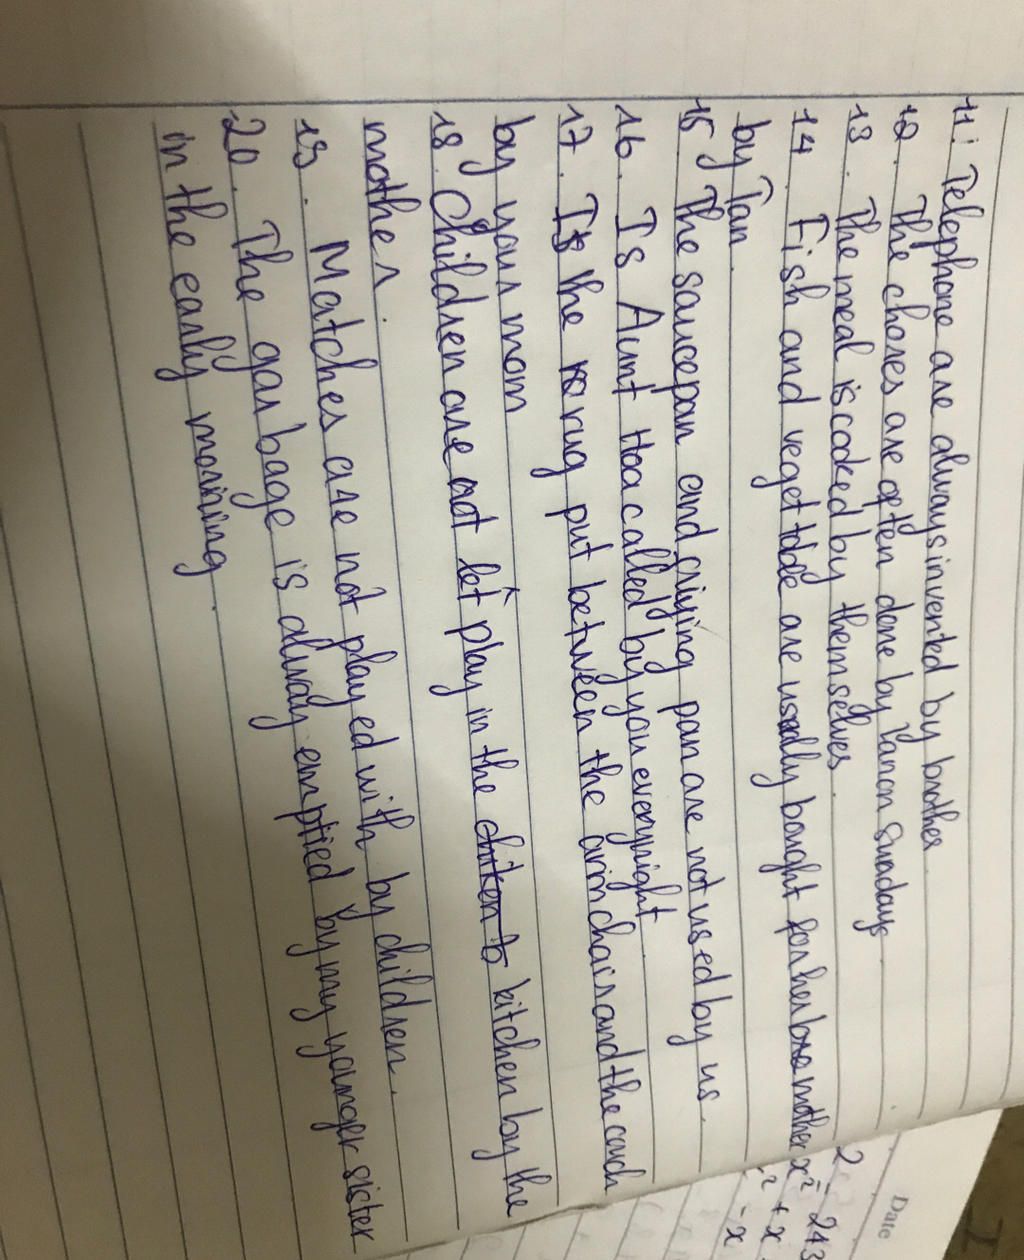 11. Telephone are always invented by brother
12. The chores are often done by Nan on Sunadays
13. The meal is cooked by themselves.
14 Fish and vegettable are usually bought for her mother
by Tan
15 The saucepan and friying pan are not used by us.
16. Is Aunt Hoa called by you everynight
17. Is the rug put between the armchair and the couch
by your mom
18. Children are not let play in the kitchen by the
mother.
19. Matches are not played with by children.
20. The garbage is alway emptied by my younger sister
in the early morining.
Date